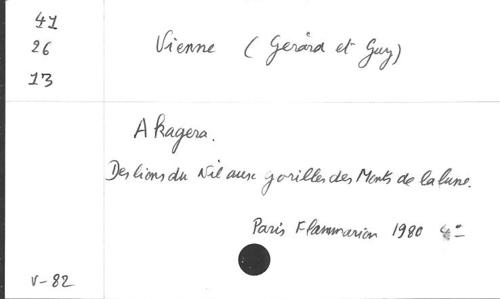 41
26
13
Vienne (Gérard et Guy)
Akagera.
Des lions du Nil aux gorilles des Monts de la lune.
Paris Flammarion 1980 4°
V-82